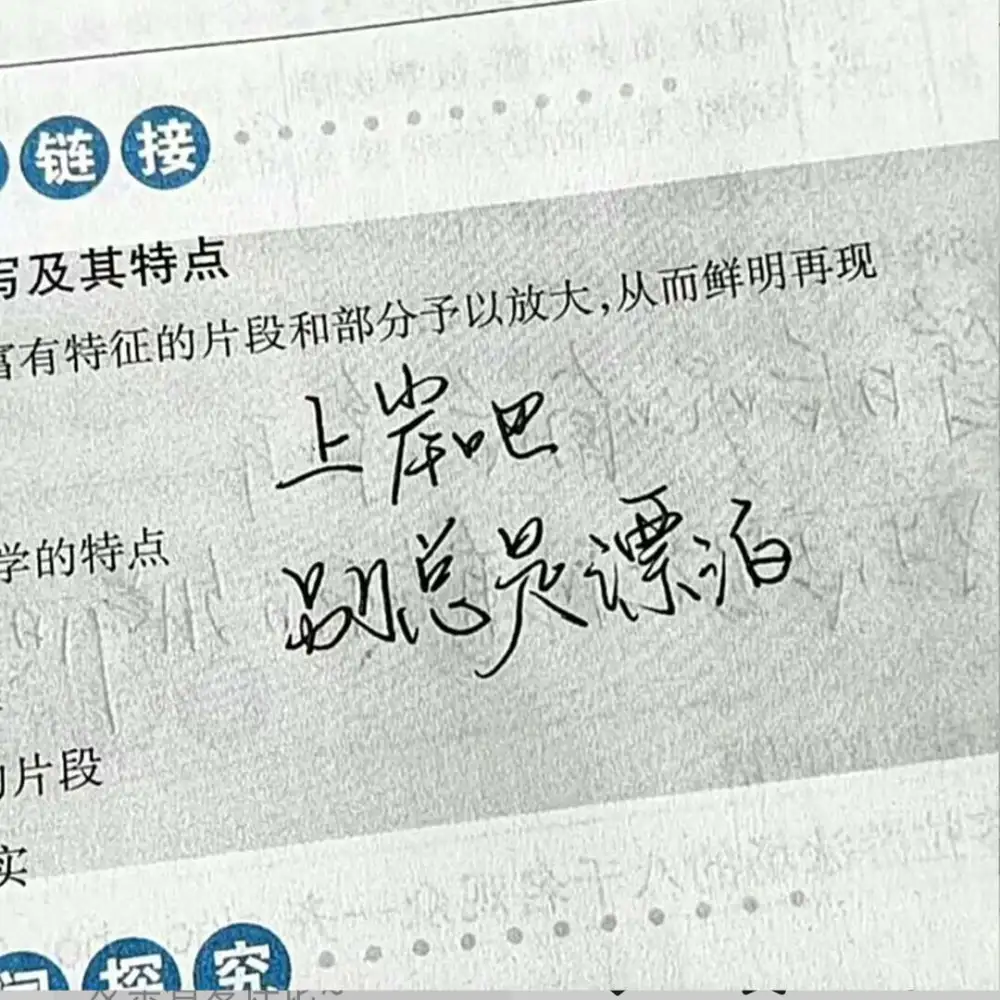 链接
及其特点
富有特征的片段和部分予以放大,从而鲜明再现
上岸吧
学的特点
别总是漂泊
片段
实
探究